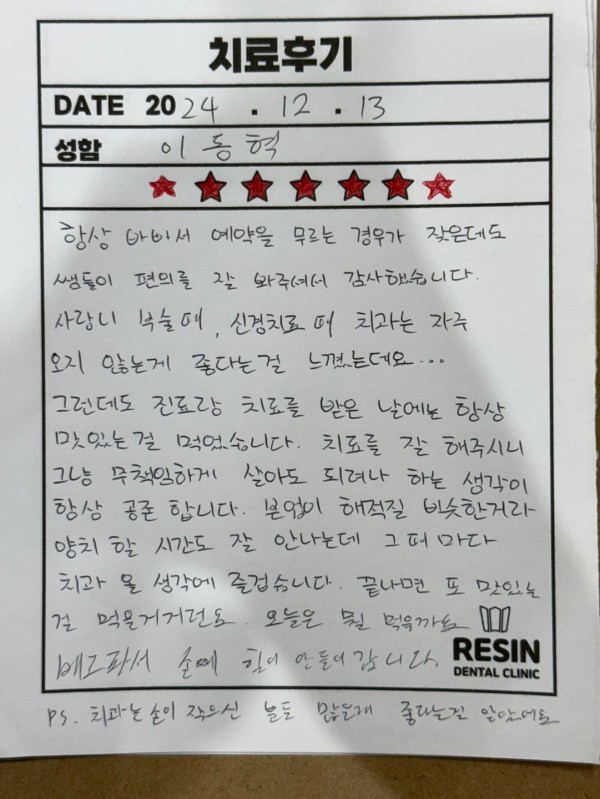 치료후기
DATE 2024 . 12 . 13
성함 이동혁
항상 바빠서 예약을 무르는 경우가 잦은데도
쌤들이 편의를 잘 봐주셔서 감사했습니다.
사랑니 뽑을때, 신경치료 때 치과는 자주
오지 않는게 좋다는걸 느꼈는데요...
그런데도 진료랑 치료를 받은 날에는 항상
맛있는걸 먹었습니다. 치료를 잘 해주시니
그냥 무책임하게 살아도 되려나 하는 생각이
항상 공존 합니다. 본업이 해적질 비슷한거라
양치 할 시간도 잘 안나는데 그 때 마다
치과 올 생각에 즐겁습니다. 끝나면 또 맛있는
걸 먹을거거던요. 오늘은 뭘 먹을까요
배고파서 손에 힘이 안들어갑니다
RESIN
DENTAL CLINIC
PS. 치과는 손이 작으신 분들 많을래 좋다는걸 알았네요